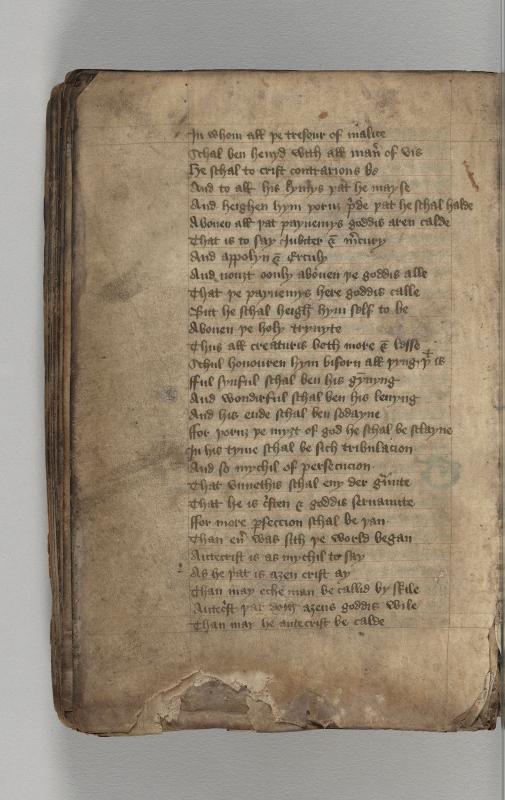 In whom all þe tresour of malice
Schal ben heuyd with all man̄ of vis
He schal to crist contrarious be
And to all his lymys þat he may se
And heighen hym þoruȝ p̄de þat he schal halde
Abouen all þat paynemys goddis aren calde
That is to say Jubiter & m̄cury
And appolyn & Erculy
And nouȝt oonly abouen þe goddis alle
That þe paynemys here goddis calle
But he schal heigh hym self to be
Abouen þe holy trynyte
Thus all creaturis both more & lesse
Schul honouren hym biforn all þyng þt is
fful synful schal ben his gynyng
And wondirful schal ben his leuyng
And his ende schal ben sodayne
ffor þoruȝ þe myȝt of god he schal be sclayne
In his tyme schal be sich tribulacion
And so mychil of persecucion
That vnnethis schal eny der g̃unte
That he is c̃sten & goddis seruaunte
ffor more p̱seccion schal be þan
Than eu̅ was sith þe world began
Antecrist is as mychil to say
As he þat is aȝen crist ay
Than may eche man be callid by skile
Antec̃st þat doth aȝens goddis wile
Than may he antecrist be calde